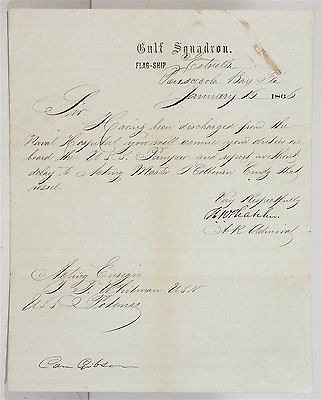 Gulf Squadron.
FLAG-SHIP Estrella
Pensacola Bay Fla
January 15 1866
Sir
Having been discharged from the
Naval Hospital you will resume your duties on
board the U.S.S. and report without
delay to Acting Master Comdg that
vessel.
Very Respectfully
A R Admiral
Acting Ensign
Whitman USN
USS Potomac
Gibson